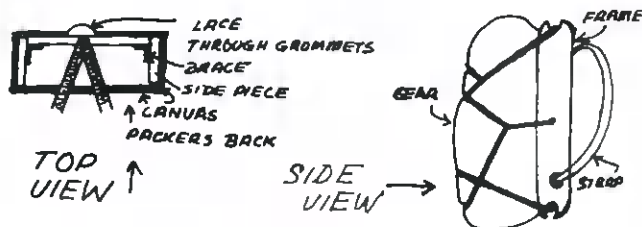 LACE
THROUGH GROMMETS
BRACE
SIDE PIECE
CANVAS
PACKERS BACK
TOP
VIEW
FRAME
GEAR
SIDE
VIEW
STRAP